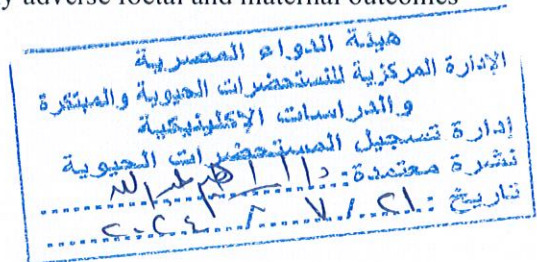 y adverse foetal and maternal outcomes
هيئة الدواء المصرية
الإدارة المركزية للمستحضرات الحيوية والمبتكرة
والدراسات الإكلينيكية
إدارة تسجيل المستحضرات الحيوية
نشرة معتمدة: د/
تاريخ: ٢١ / ٧ / ٢٠٢٤